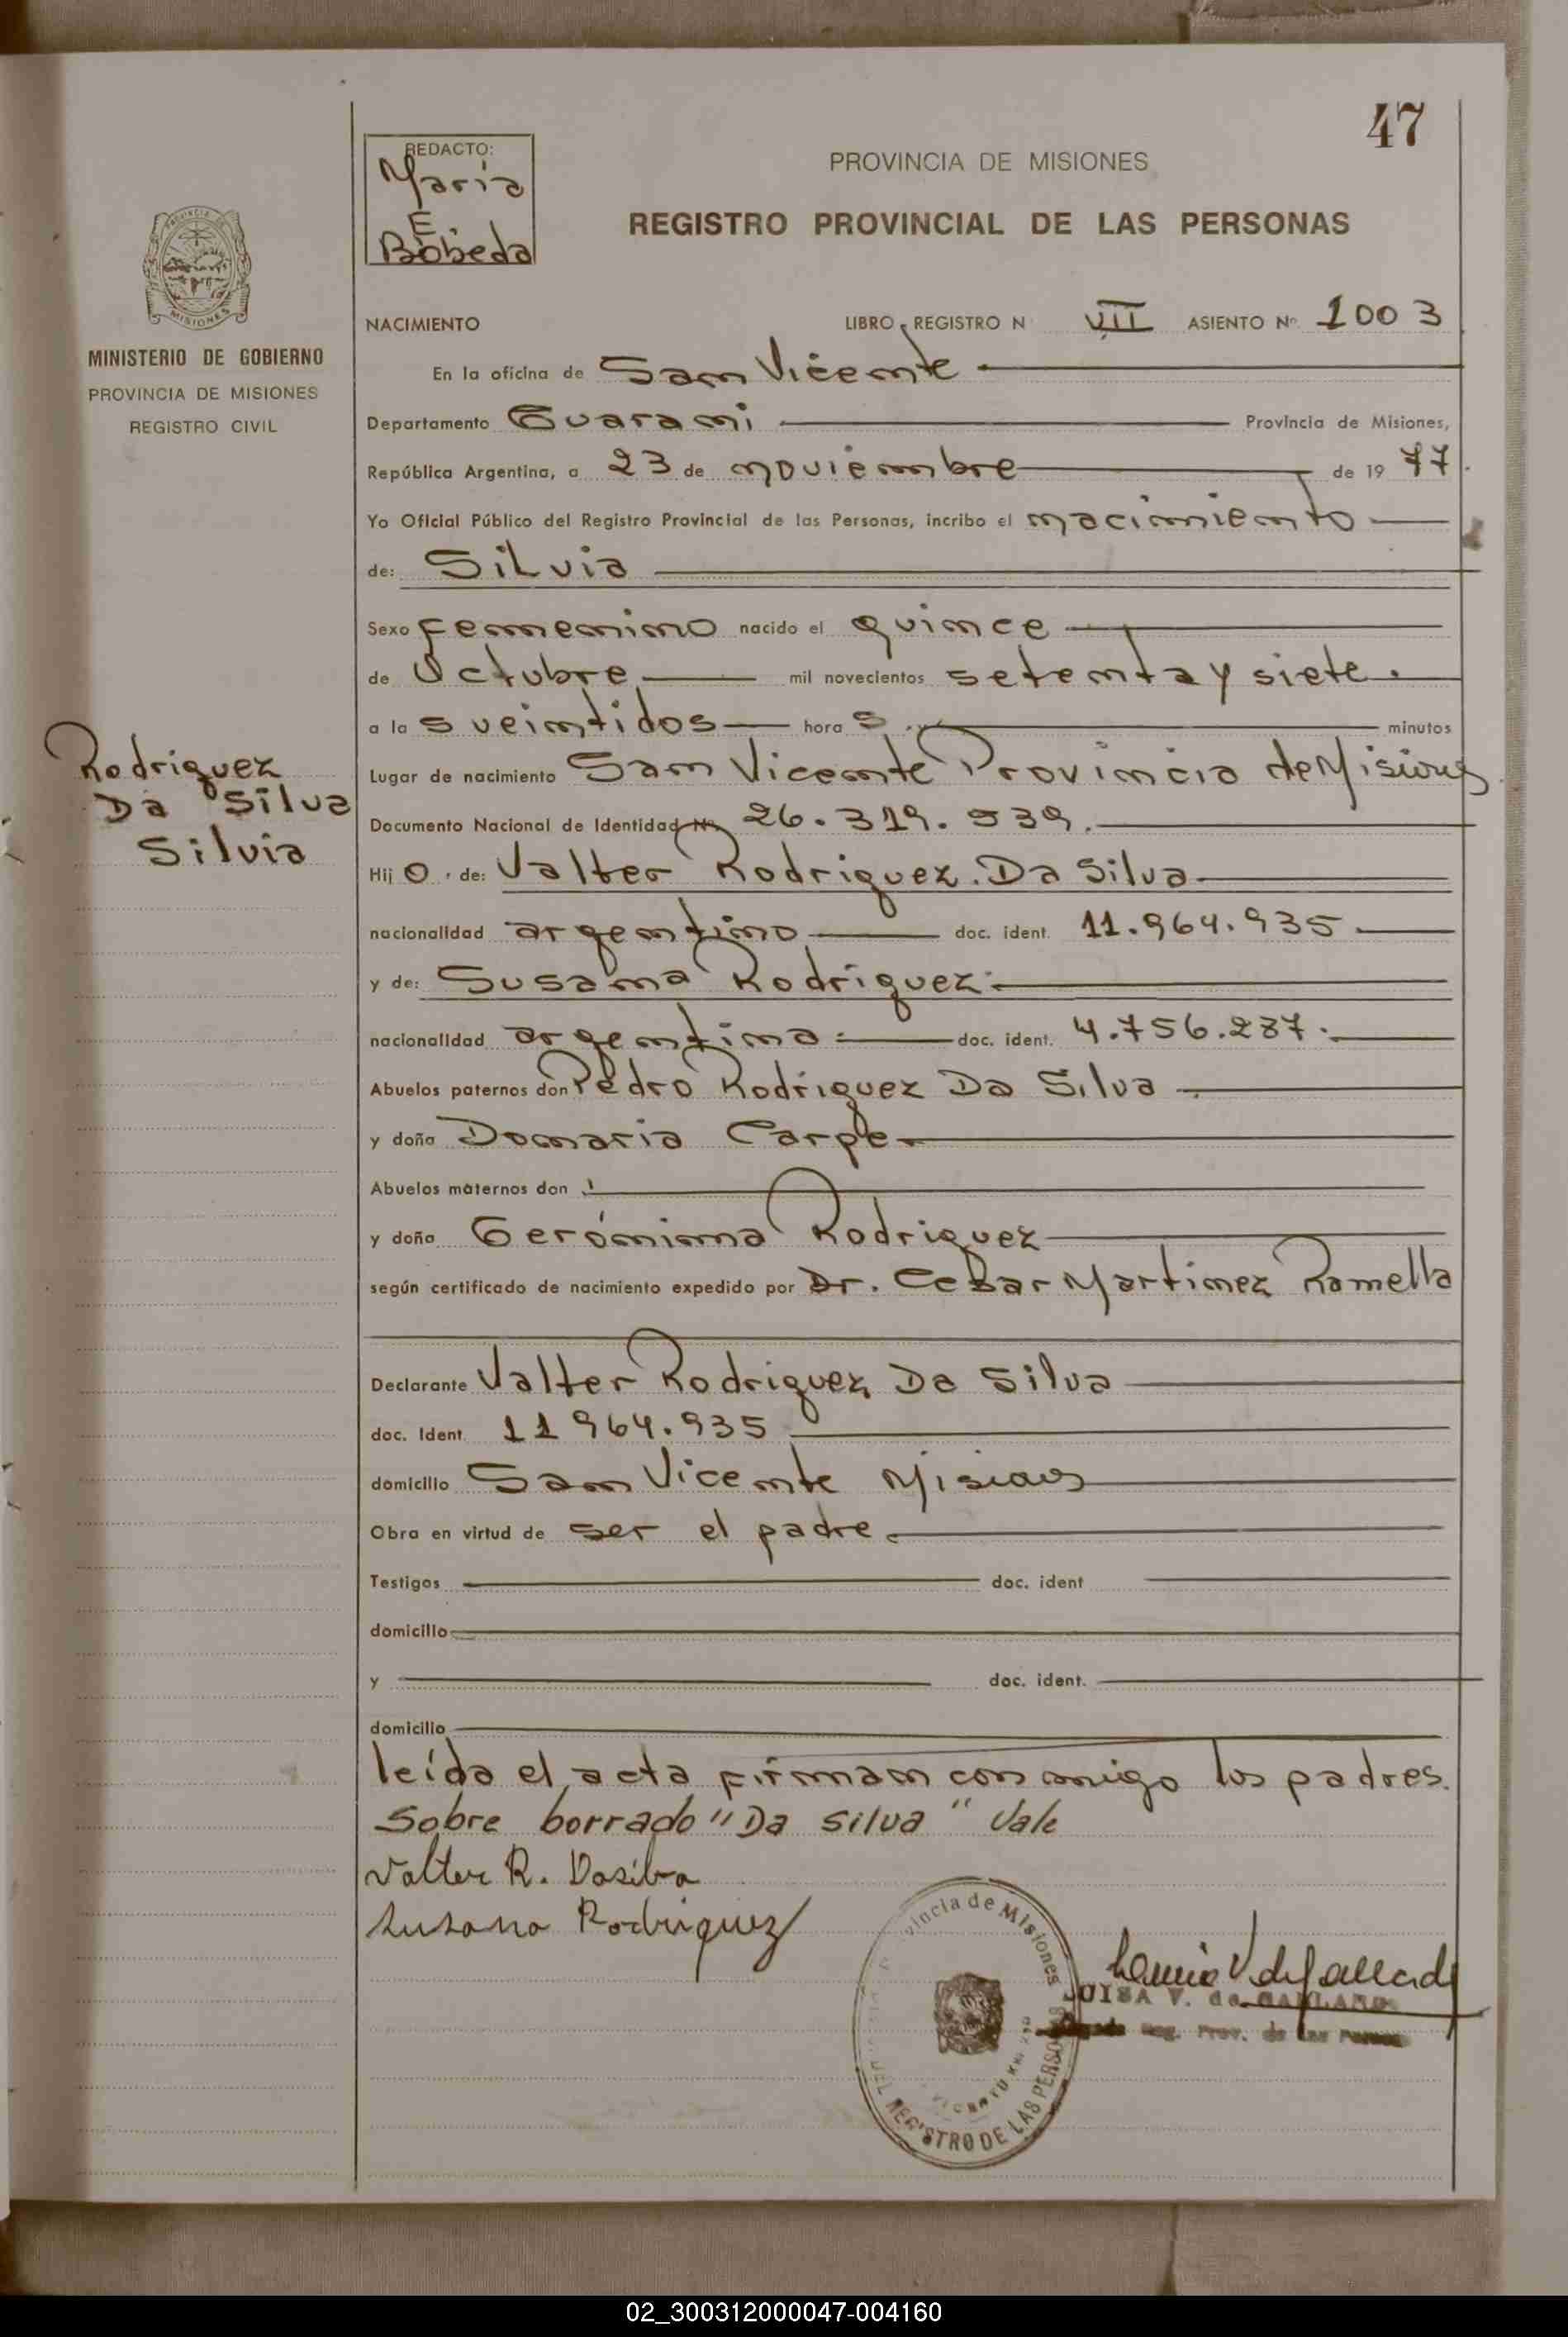 47
REDACTO:
María
E.
Bobeda
PROVINCIA DE MISIONES
REGISTRO PROVINCIAL DE LAS PERSONAS
MISIONES
MINISTERIO DE GOBIERNO
PROVINCIA DE MISIONES
REGISTRO CIVIL
NACIMIENTO LIBRO, REGISTRO N VII ASIENTO Nº 1003
En la oficina de San Vicente
Departamento Guarani Provincia de Misiones,
República Argentina, a 23 de noviembre de 1977.
Yo Oficial Público del Registro Provincial de las Personas, incribo el nacimiento
de: Silvia
Sexo femenino nacido el quince
de Octubre mil novecientos setenta y siete.
a las veintidos horas minutos
Rodriguez
Da Silva
Silvia
Lugar de nacimiento San Vicente Provincia de Misiones
Documento Nacional de Identidad Nº 26.319.539.
Hijo de: Valter Rodriguez Da Silva
nacionalidad argentino doc. ident. 11.964.935.
y de: Susana Rodriguez
nacionalidad argentina doc. ident. 4.756.287.
Abuelos paternos don Pedro Rodriguez Da Silva
y doña Domaria Carpe
Abuelos maternos don
y doña Gerónima Rodriguez
según certificado de nacimiento expedido por Dr. Cesar Martinez Ramella
Declarante Valter Rodriguez Da Silva
doc. Ident. 11 964.935
domicilio San Vicente Misiones
Obra en virtud de ser el padre.
Testigos doc. ident
domicilio
y doc. ident.
domicilio
leída el acta firman conmigo los padres.
Sobre borrado "Da Silva" Vale
Valter R. Dasilva
Susana Rodriguez
vincia de Misiones
REGISTRO DE LAS PERSO
V. de
Reg. Prov. de las
02_300312000047-004160